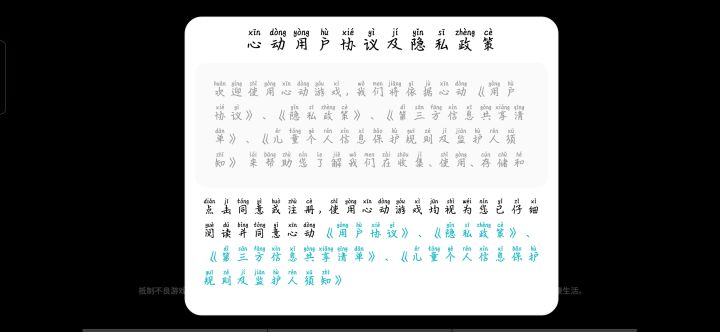 xīn dòng yòng hù xié yì jí yǐn sī zhèng cè
心动用户协议及隐私政策
huān yíng shǐ yòng xīn dòng yóu xì wǒ men jiāng yī jù xīn dòng yòng hù
欢迎使用心动游戏，我们将依据心动《用户
xié yì yǐn sī zhèng cè dì sān fāng xìn xī gòng xiǎng qīng
协议》、《隐私政策》、《第三方信息共享清
dān ér tóng gè rén xìn xī bǎo hù guī zé jí jiān hù rén xū
单》、《儿童个人信息保护规则及监护人须
zhī lái bāng zhù nín le jiě wǒ men zài shōu jí shǐ yòng cún chǔ hé
知》来帮助您了解我们在收集、使用、存储和
diǎn jī tóng yì huò zhù cè shǐ yòng xīn dòng yóu xì jūn shì wéi nín yǐ zǐ xì
点击同意或注册，使用心动游戏均视为您已仔细
yuè dú bìng tóng yì xīn dòng yòng hù xié yì yǐn sī zhèng cè
阅读并同意心动《用户协议》、《隐私政策》、
dì sān fāng xìn xī gòng xiǎng qīng dān ér tóng gè rén xìn xī bǎo hù
《第三方信息共享清单》、《儿童个人信息保护
guī zé jí jiān hù rén xū zhī
规则及监护人须知》
抵制不良游戏 生活。